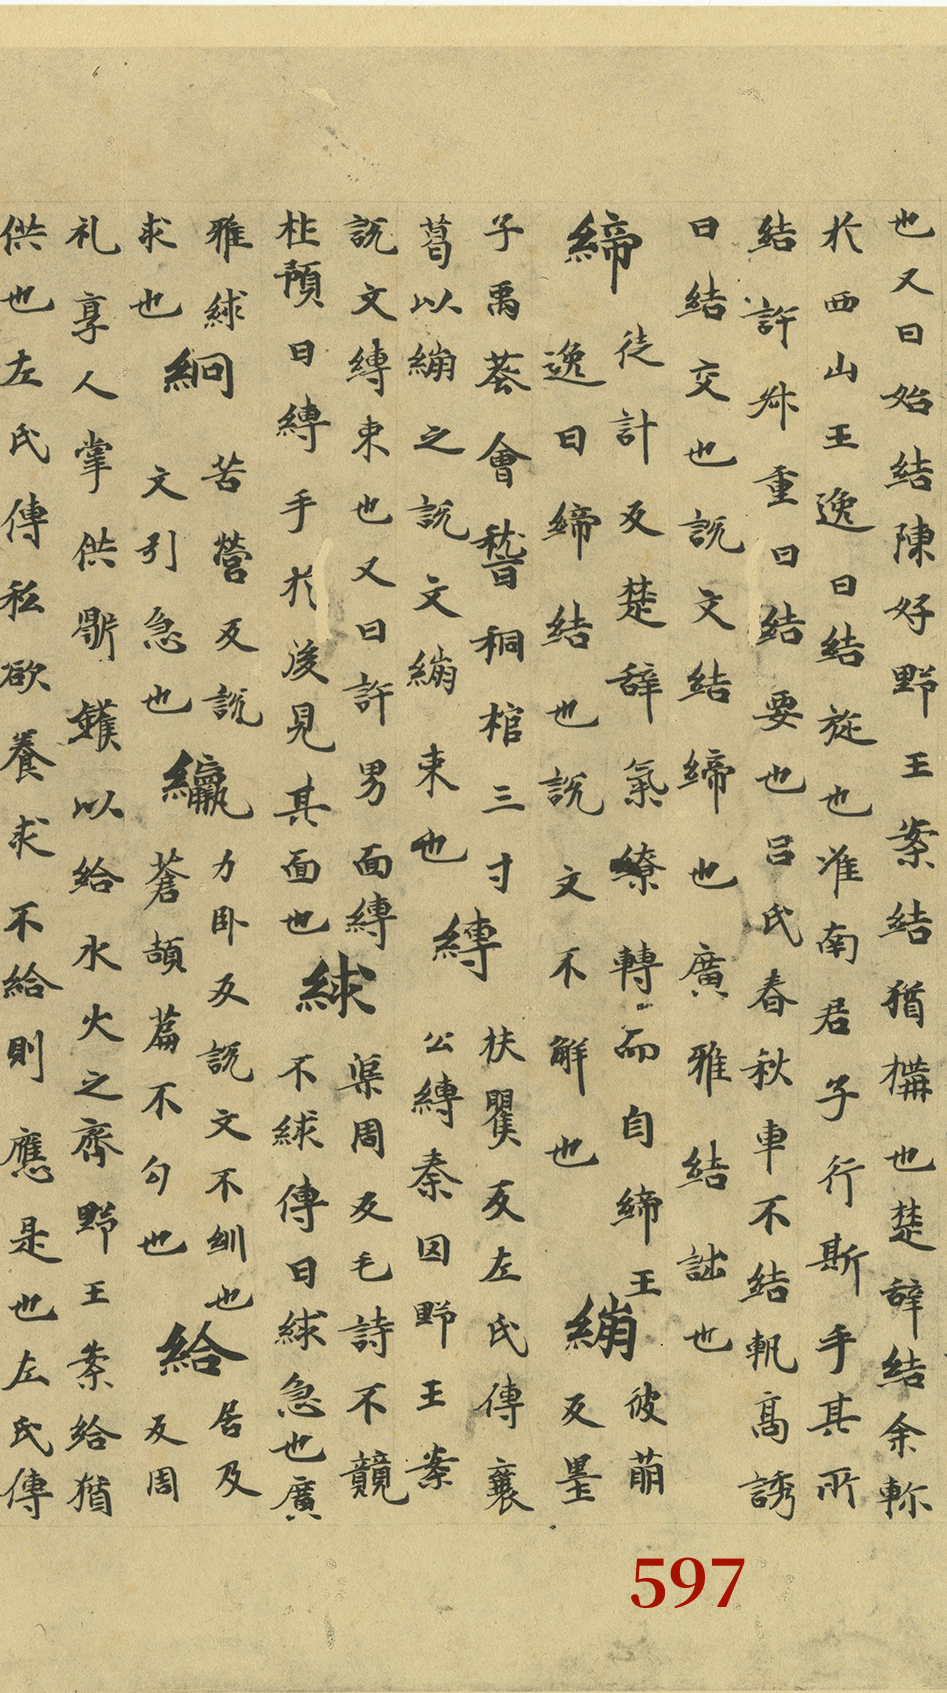 也又曰始結陳好野王案結猶構也楚辞結余軫
於西山王逸曰結旋也淮南君子行斯手其所
結許升重曰結要也呂氏春秋車不結軌高誘
曰結交也説文結締也廣雅結詘也
締徒計反楚辞氣繚轉而自締王
逸曰締結也説文不解也繃彼萠反墨
子禹葬會稽桐棺三寸
葛以繃之説文繃束也縛扶瞿反左氏傳襄
公縛秦囚野王案
説文縛束也又曰許男面縛
杜預曰縛手於後見其面也絿渠周反毛詩不競
不絿傳曰絿急也廣
雅絿
求也絅苦營反説文引急也
𦆁力卧反説文不紃也
蒼頡篇不匀也給居及反周
礼享人掌供鼎鑊以給水火之齊野王案給猶
供也左氏傳私欲養求不給則應是也左氏傳
597